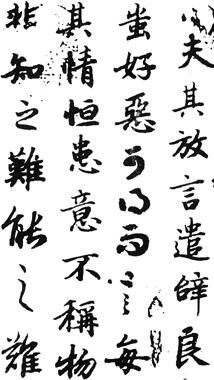 心夫其放言遣辭良
蚩好惡可得而言每
其情恒患意不稱物
非知之難能之難